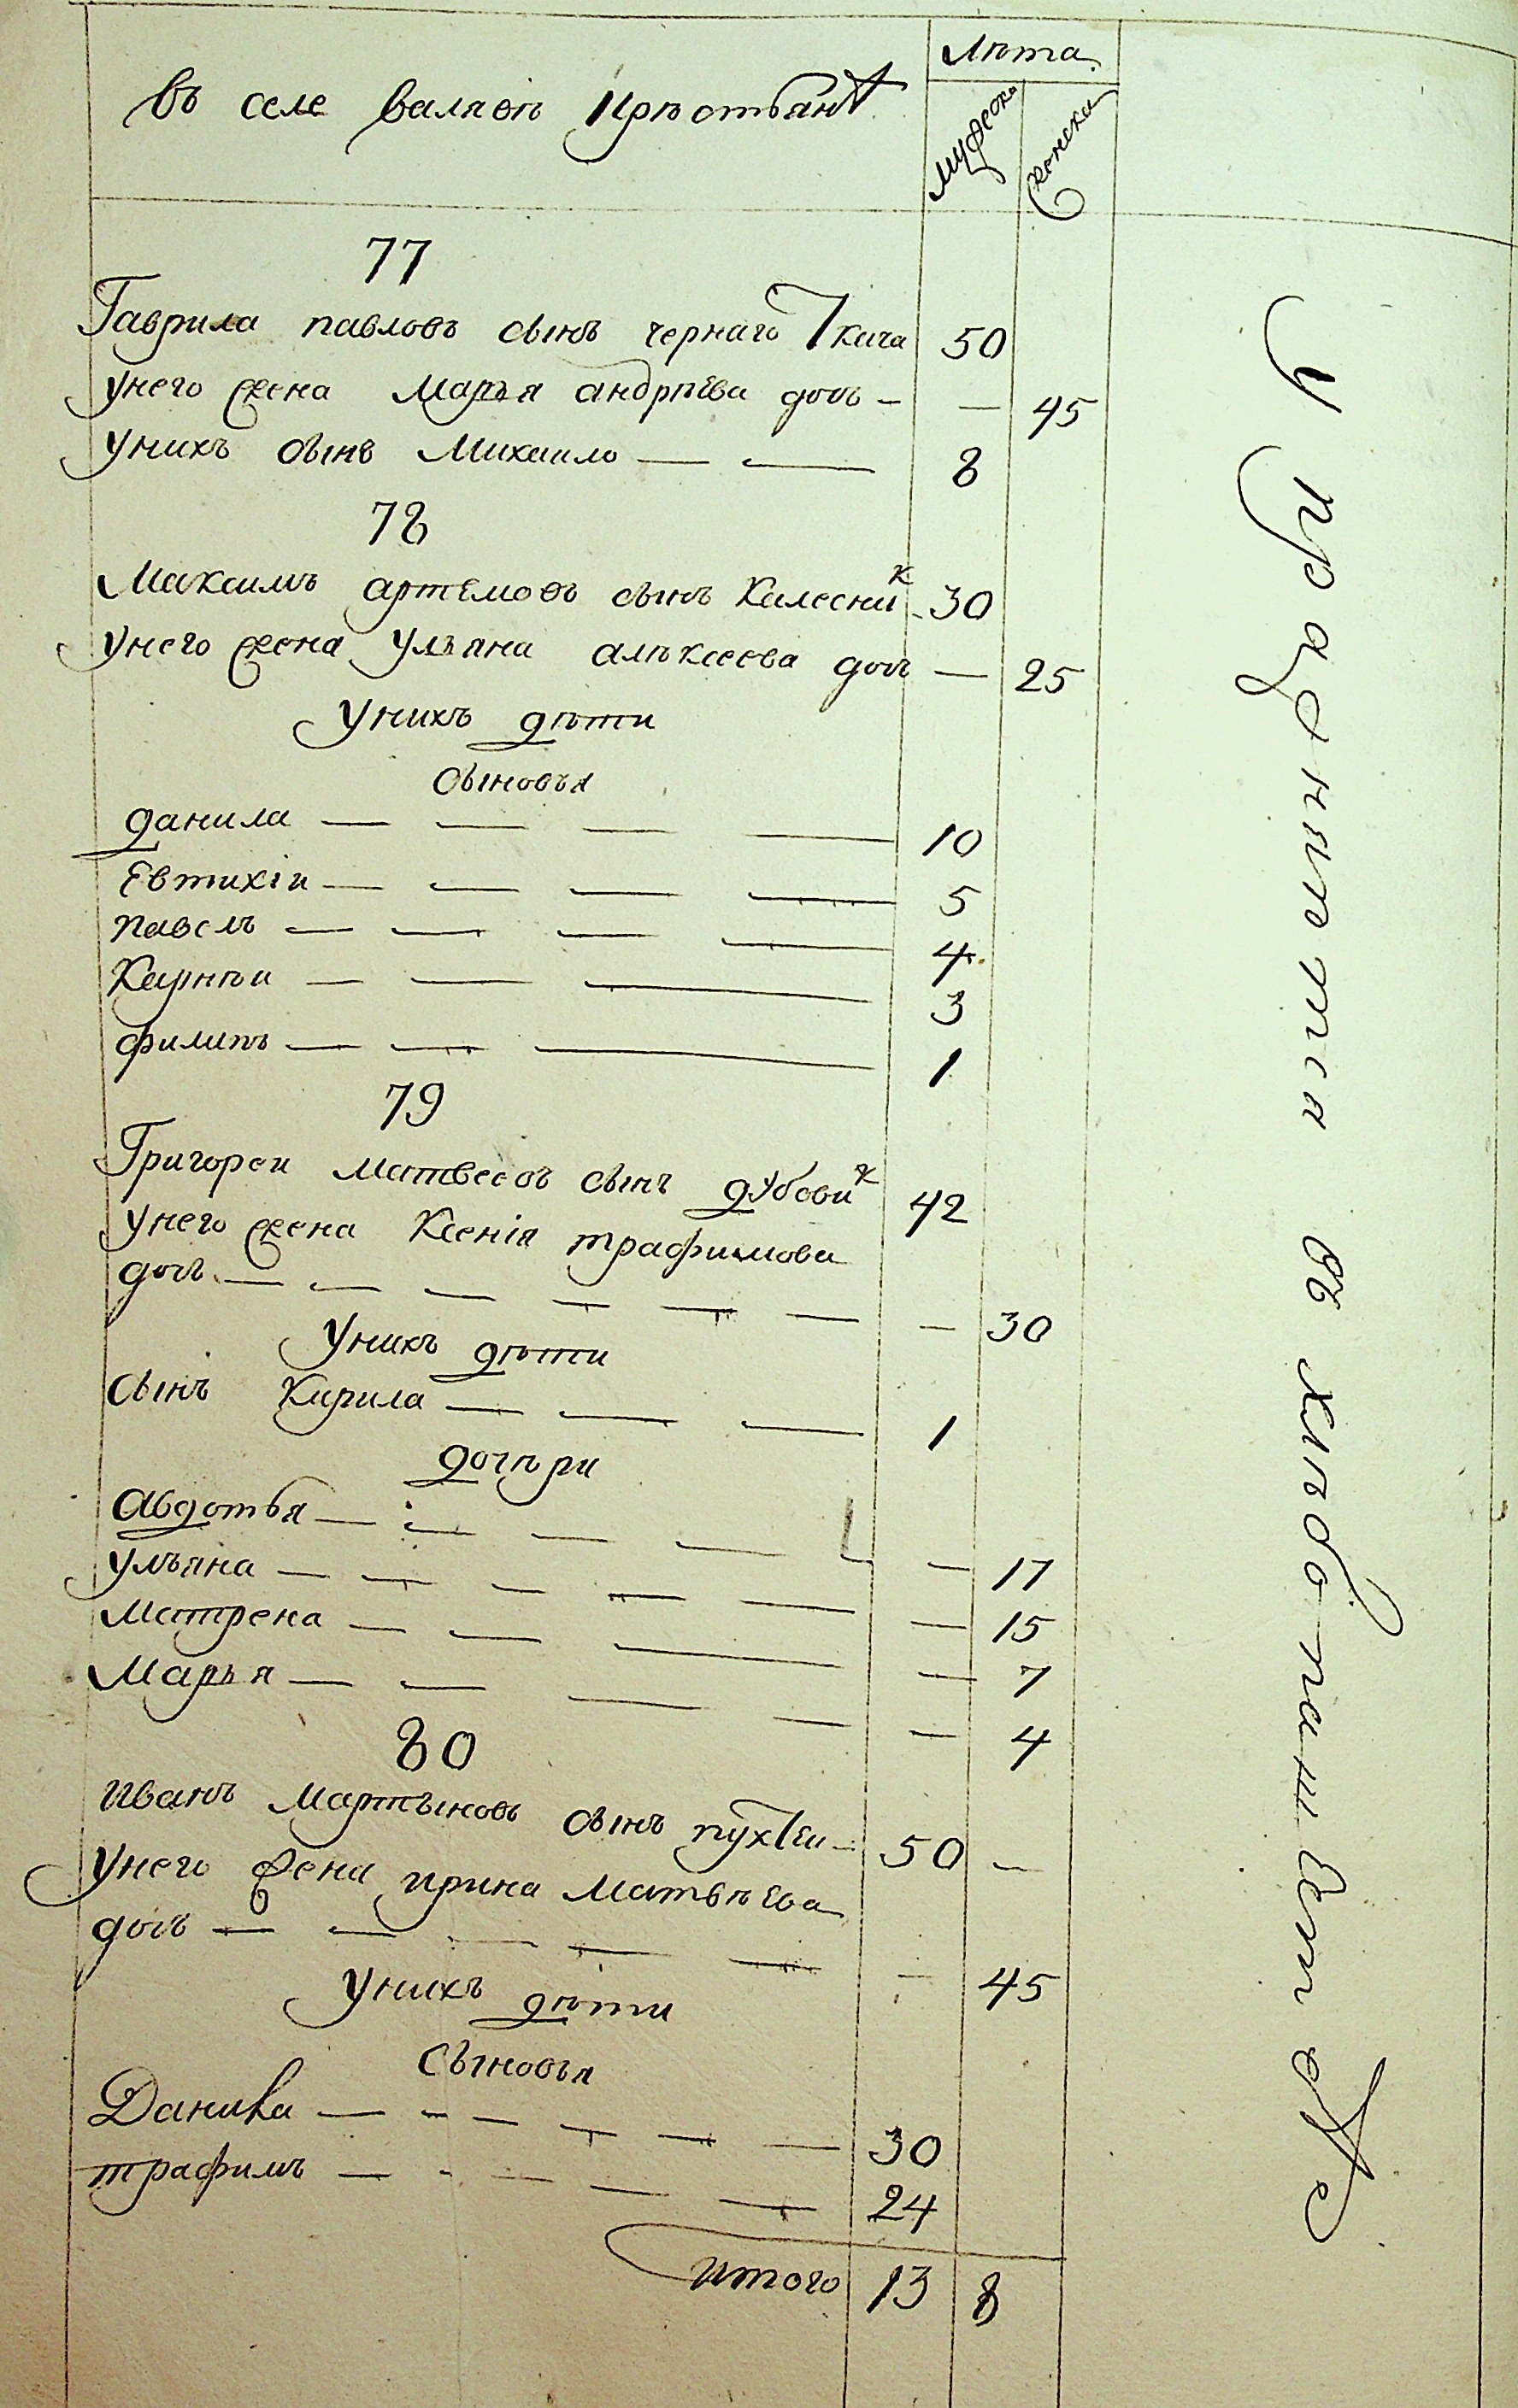 въ селе валявѣ крѣстьянъ
Лѣта.
мужеска
женска
77
Гаврила павловъ сынъ чернаго Ткача 50
унего жена Марья андрѣева дочь — — 45
унихъ сынъ Михаило — — 8
78
Максимъ артемовъ сынъ Калесник 30
унего жена Ульяна алѣксеева дочь — 25
унихъ дѣти
сыновья
данила — — — — 10
Евтихіи — — — — 5
павелъ — — — — 4
Карнѣи — — — 3
филипъ — — — 1
79
Григореи матвеевъ сынъ дубовик 42
унего жена Ксенія трафимова
дочь — — — — — — — 30
унихъ дѣти
сынъ Кирила — — — 1
дочѣри
авдотья — — — — — 17
ульяна — — — — — — 15
матрена — — — — 7
Марья — — — — — 4
80
иванъ мартыновъ сынъ пухтеи — 50 —
унего жена ирина Матвѣева
дочь — — — — — — 45
унихъ дѣти
сыновья
Данила — — — — — — 30
трафимъ — — — — — 24
итого 13 8
упражнѣнитса въ хлѣбопашествѣ